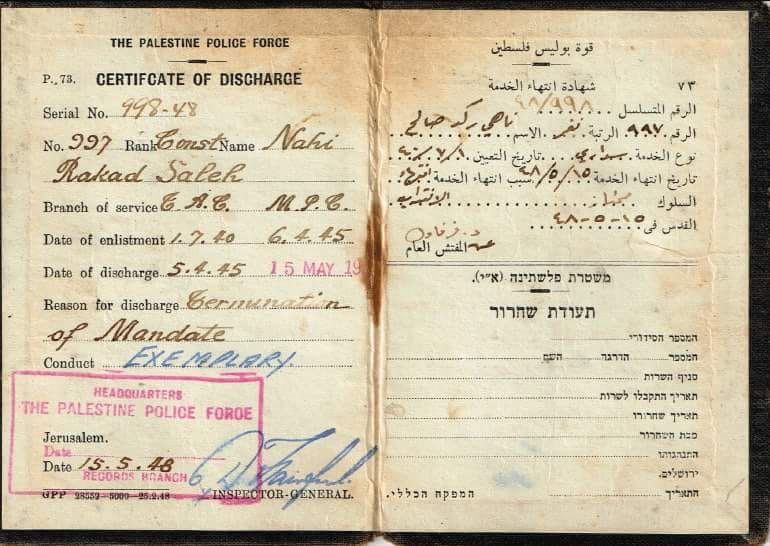 THE PALESTINE POLICE FORCE
P. 73. CERTIFCATE OF DISCHARGE
Serial No. 998-48
No. 997 Rank Const Name Nahi
Rakad Saleh
Branch of service T.A.C. M.P.C.
Date of enlistment 1.7.40 6.4.45
Date of discharge 5.4.45 15 MAY 19
Reason for discharge Termunation
of Mandate
Conduct EXEMPLARY.
HEADQUARTERS
THE PALESTINE POLICE FORCE
Jerusalem.
Date
Date 15.5.48
RECORDS BRANCH
INSPECTOR-GENERAL.
GPP 28552—5000—25.2.48
قوة بوليس فلسطين
٧٣ شهادة انتهاء الخدمة
الرقم المتسلسل ٩٩٨/٤٨
الرقم ٩٩٧ الرتبة نفر الاسم ناهي ركاد صالح
نوع الخدمة تاريخ التعيين
تاريخ انتهاء الخدمة ٤٨/٥/١٥ سبب انتهاء الخدمة انتهاء
السلوك ممتاز الانتداب
القدس في ١٥-٥-٤٨
المفتش العام
משטרת פלשתינה (א"י).
תעודת שחרור
המספר הסידורי
המספר הדרגה השם
סניף השרות
תאריך התקבלו לשרות
תאריך שחרורו
סבת השחרור
התנהגותו
ירושלים.
התאריך המפקח הכללי.